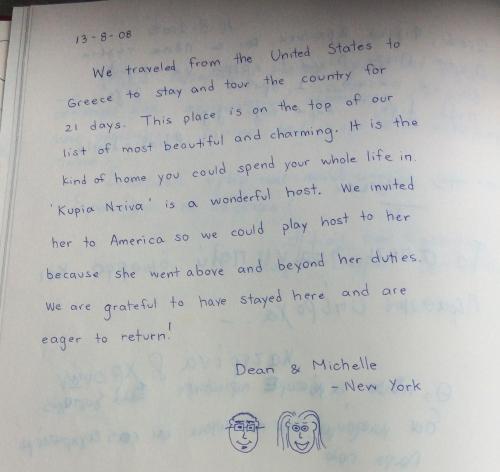 13-8-08
We traveled from the United States to
Greece to stay and tour the country for
21 days. This place is on the top of our
list of most beautiful and charming. It is the
kind of home you could spend your whole life in.
'Κυρια Ντινα' is a wonderful host. We invited
her to America so we could play host to her
because she went above and beyond her duties.
We are grateful to have stayed here and are
eager to return!
Dean & Michelle
- New York